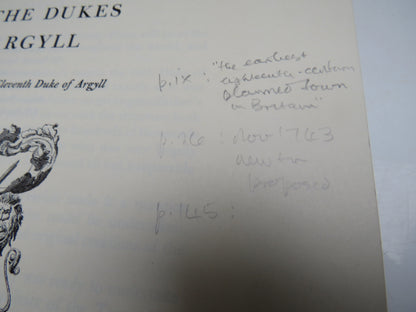 THE DUKES
ARGYLL
Eleventh Duke of Argyll
p.ix : "the earliest
eighteenth-century
planned town
in Britain"
p.26 : Nov 1743
new tn
proposed
p.145 :